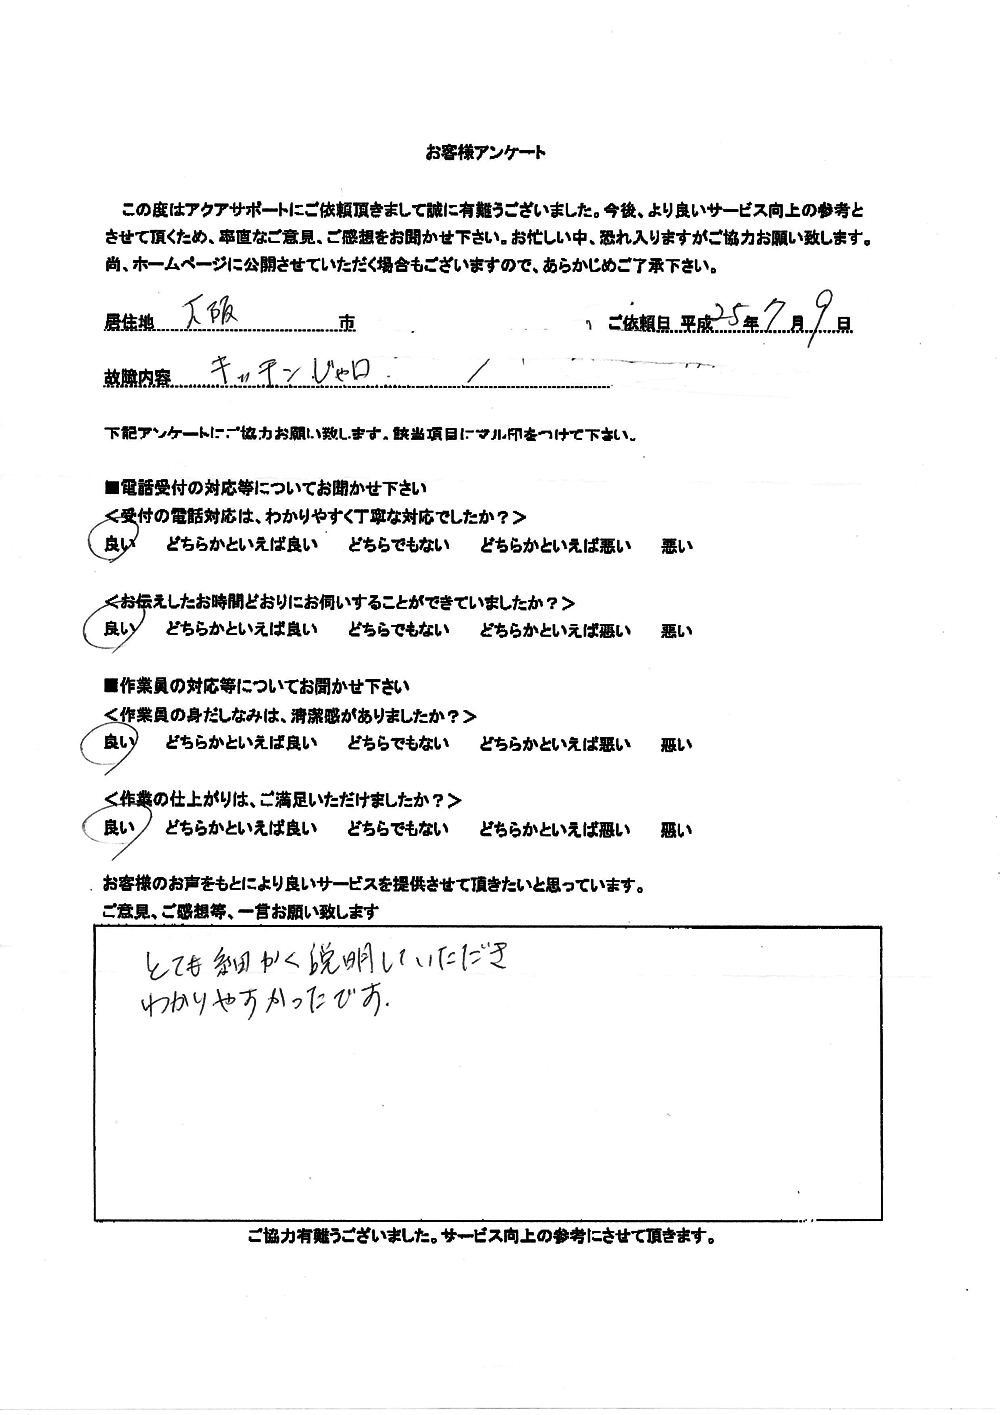 お客様アンケート
この度はアクアサポートにご依頼頂きまして誠に有難うございました。今後、より良いサービス向上の参考と
させて頂くため、率直なご意見、ご感想をお聞かせ下さい。お忙しい中、恐れ入りますがご協力お願い致します。
尚、ホームページに公開させていただく場合もございますので、あらかじめご了承下さい。
居住地 大阪 市 ご依頼日 平成25年7月9日
故障内容 キッチンじゃ口
下記アンケートにご協力お願い致します。該当項目にマル印をつけて下さい。
■電話受付の対応等についてお聞かせ下さい
<受付の電話対応は、わかりやすく丁寧な対応でしたか?>
良い どちらかといえば良い どちらでもない どちらかといえば悪い 悪い
<お伝えしたお時間どおりにお伺いすることができていましたか?>
良い どちらかといえば良い どちらでもない どちらかといえば悪い 悪い
■作業員の対応等についてお聞かせ下さい
<作業員の身だしなみは、清潔感がありましたか?>
良い どちらかといえば良い どちらでもない どちらかといえば悪い 悪い
<作業の仕上がりは、ご満足いただけましたか?>
良い どちらかといえば良い どちらでもない どちらかといえば悪い 悪い
お客様のお声をもとにより良いサービスを提供させて頂きたいと思っています。
ご意見、ご感想等、一言お願い致します
とても細かく説明していただき
わかりやすかったです.
ご協力有難うございました。サービス向上の参考にさせて頂きます。